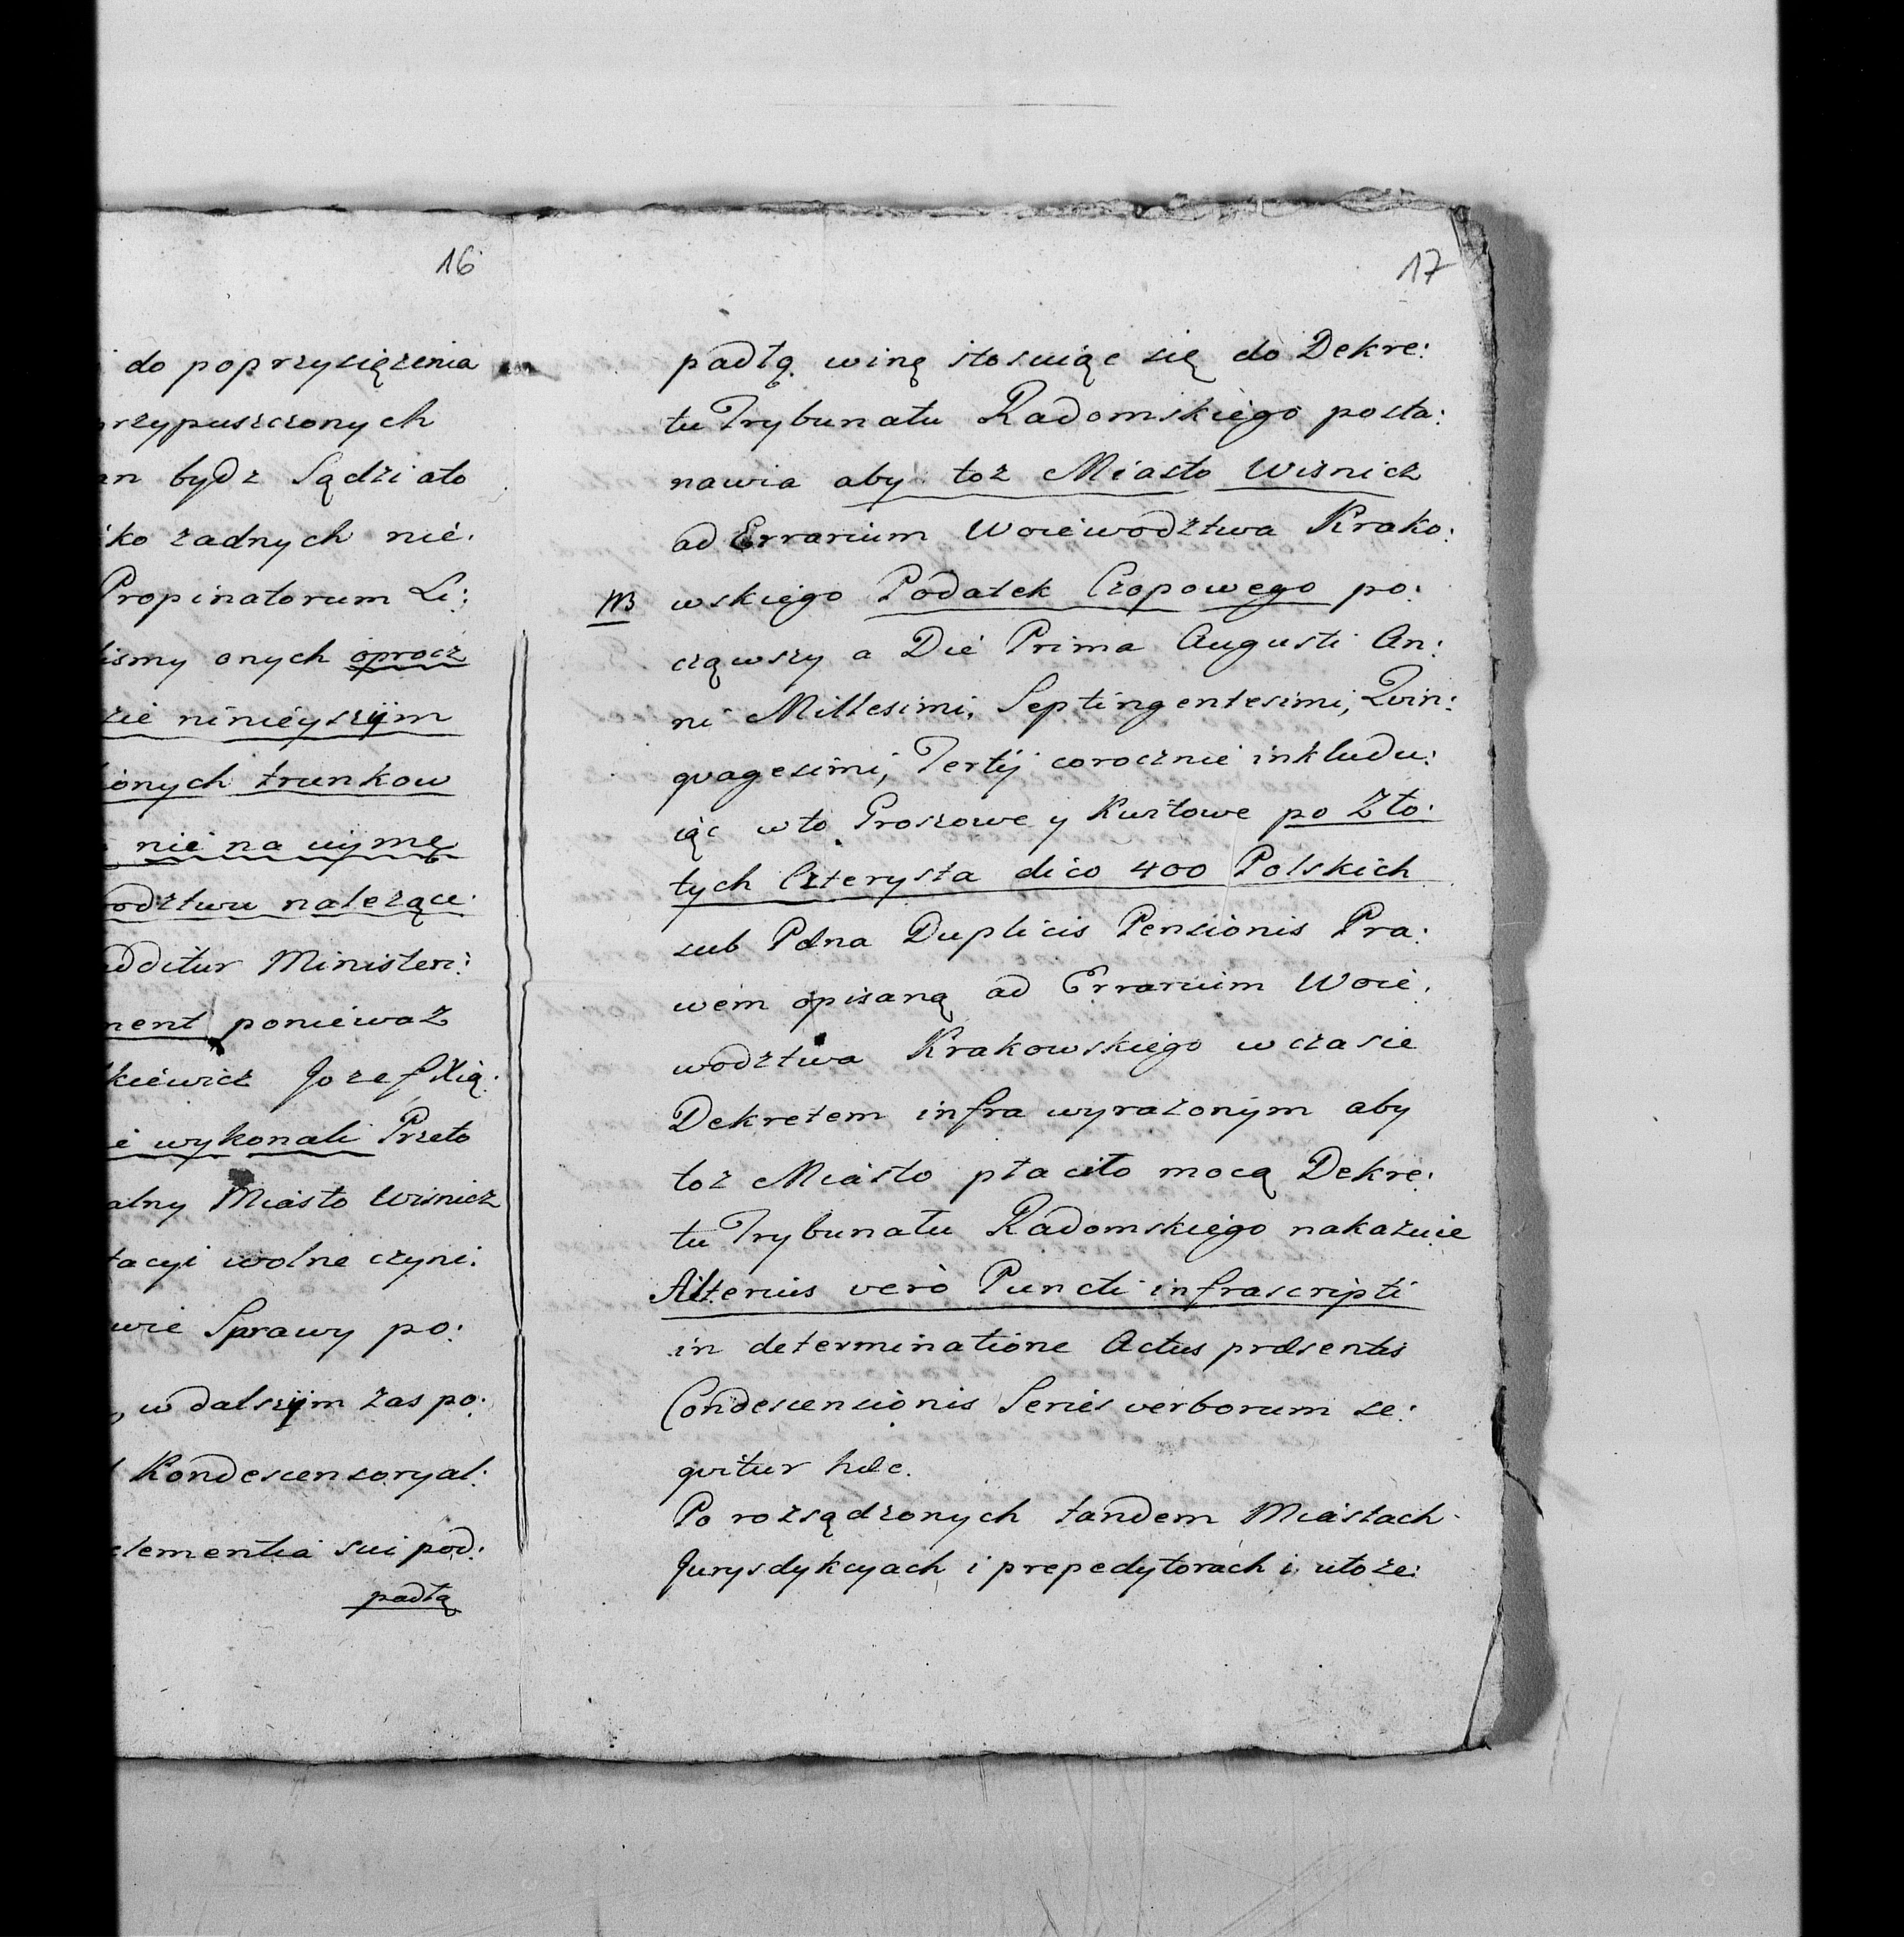 16
do poprzysiężenia
rzypuszczonych
bydz Sądziało
ko zadnych nie.
Propinatorum Li:
lismy onych oprocz
zie ninieyszym
ionych trunkow
nie na uymę
odztwu nalezące.
additur Ministeri:
ment poniewaz
kiewicz Jozef Xią:
i wykonali Przeto
alny Miasto Wisnicz
tacyi wolne czyni.
wie Sprawy po:
w dalszym zas po:
Kondescensoryal:
clementia sui pod:
padłą
17
padłą winę stosuiąc się do Dekre:
tu Trybunału Radomskiego posta:
nawia aby toz Miasto Wisnicz
ad Errarium Woiewodztwa Krako:
NB wskiego Podatek Czopowego po:
cząwszy a Die Prima Augusti An:
ni Millesimi, Septingentesimi, Qvin:
qvagesimi, Tertij corocznie inkludu:
iąc w to Groszowe y Kurzowe po Zło:
tych Czterysta dico 400 Polskich
sub Pæna Duplicis Pensionis Pra:
wem opisaną ad Errarium Woie:
wodztwa Krakowskiego w czasie
Dekretem infra wyrazonym aby
toz Miasto płaciło mocą Dekre:
tu Trybunału Radomskiego nakazuie
Alterius verò Puncti infrascripti
in determinatione Actus præsentis
Condescensionis Series verborum se:
qvitur hæc.
Po rozsądzonych tandem Miastach
Jurysdykcyach i prepedytorach i ułoze: